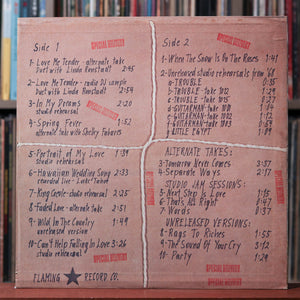 Side 1
SPECIAL DELIVERY
1- Love Me Tender - alternate take
Duet with Linda Ronstadt 2:45
2- Love Me Tender - radio DJ sample
Duet with Linda Ronstadt 2:54
3- In My Dreams 2:20
studio rehearsal
4- Spring Fever 1:52
alternate take with Shelley Fabares
5- Portrait of My Love 1:39
studio rehearsal
6- Hawaiian Wedding Song 2:33
7- King Creole - studio rehearsal 2:01
8- Faded Love - alternate take 2:51
9- Wild In The Country 1:49
unreleased version
10- Can't Help Falling In Love 3:26
studio rehearsal
SPECIAL DELIVERY
FLAMING ★ RECORD CO.
Side 2
SPECIAL DELIVERY
1- When The Snow Is On The Roses 1:41
2- Unreleased studio rehearsals from '68
a- TROUBLE
b- TROUBLE - take
c- TROUBLE - take
d- GUITARMAN - take
e- GUITARMAN - take
f- GUITARMAN - take
g- LITTLE EGYPT
ALTERNATE TAKES:
3- Tomorrow Never Comes 3:57
4- Separate Ways 2:37
STUDIO JAM SESSIONS:
5- Next Step Is Love 1:15
6- That's All Right 0:47
7- Words 0:31
UNRELEASED VERSIONS:
8- Rags To Riches 1:55
9- The Sound Of Your Cry 3:12
10- Party 1:29
SPECIAL DELIVERY